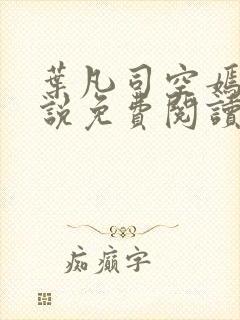 葉凡司空嫣
說免費閱讀
痴癲字